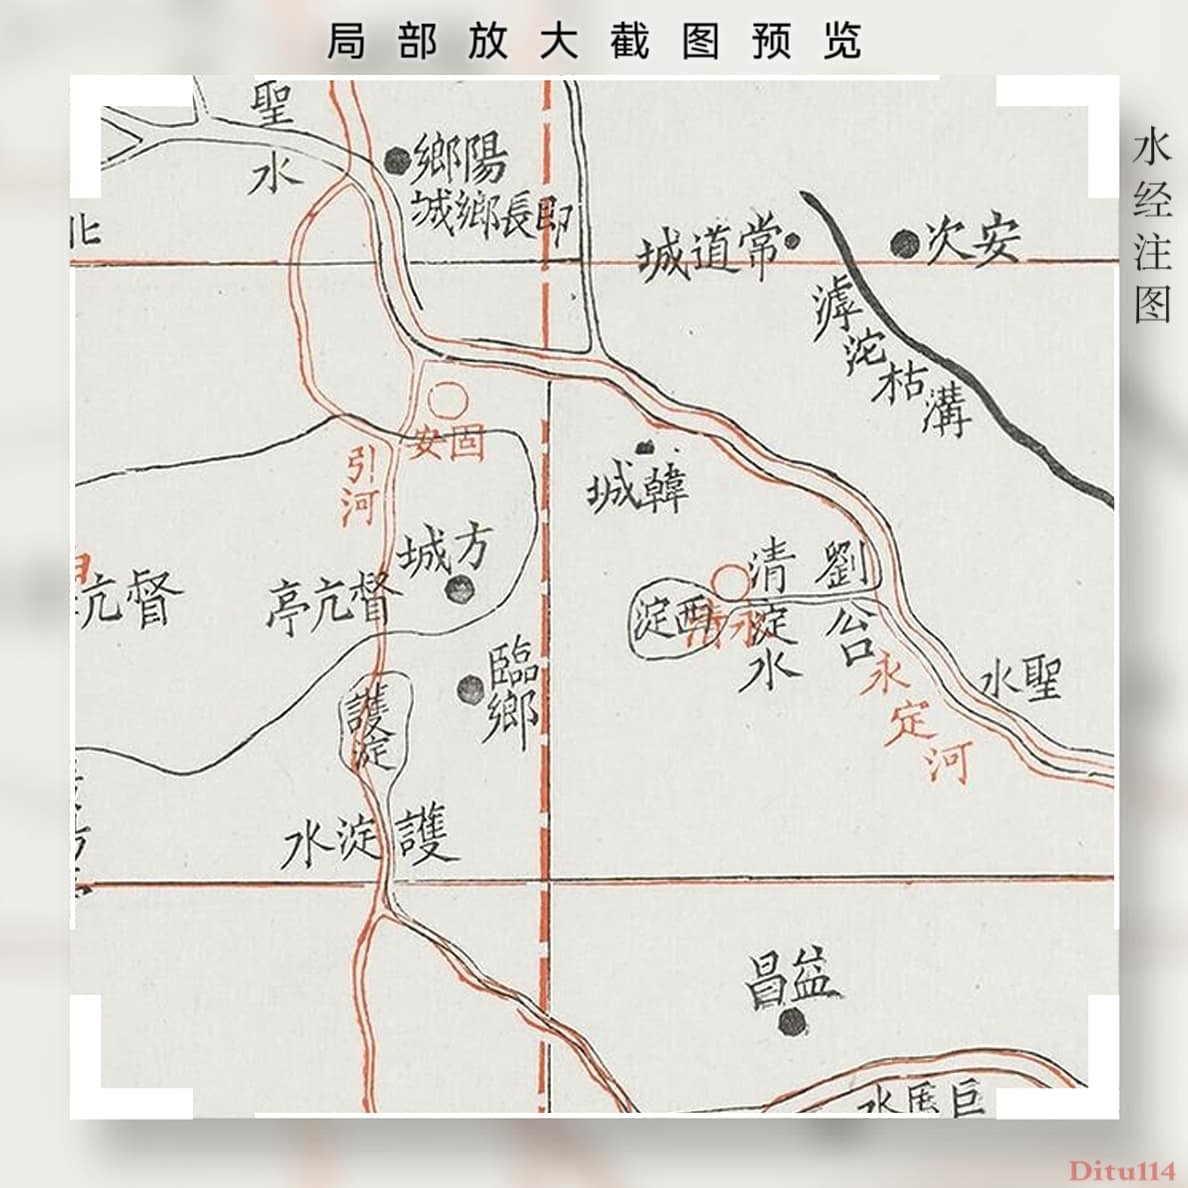 局部放大截图预览
水经注图
聖水
陽鄉
即長鄉城
北
常道城
安次
滹沱枯溝
固安
引河
韓城
方城
督亢
督亢亭
清淀水
劉公
西淀
永清
臨鄉
護淀
聖水
永定河
護淀水
益昌
巨馬水
Ditu114